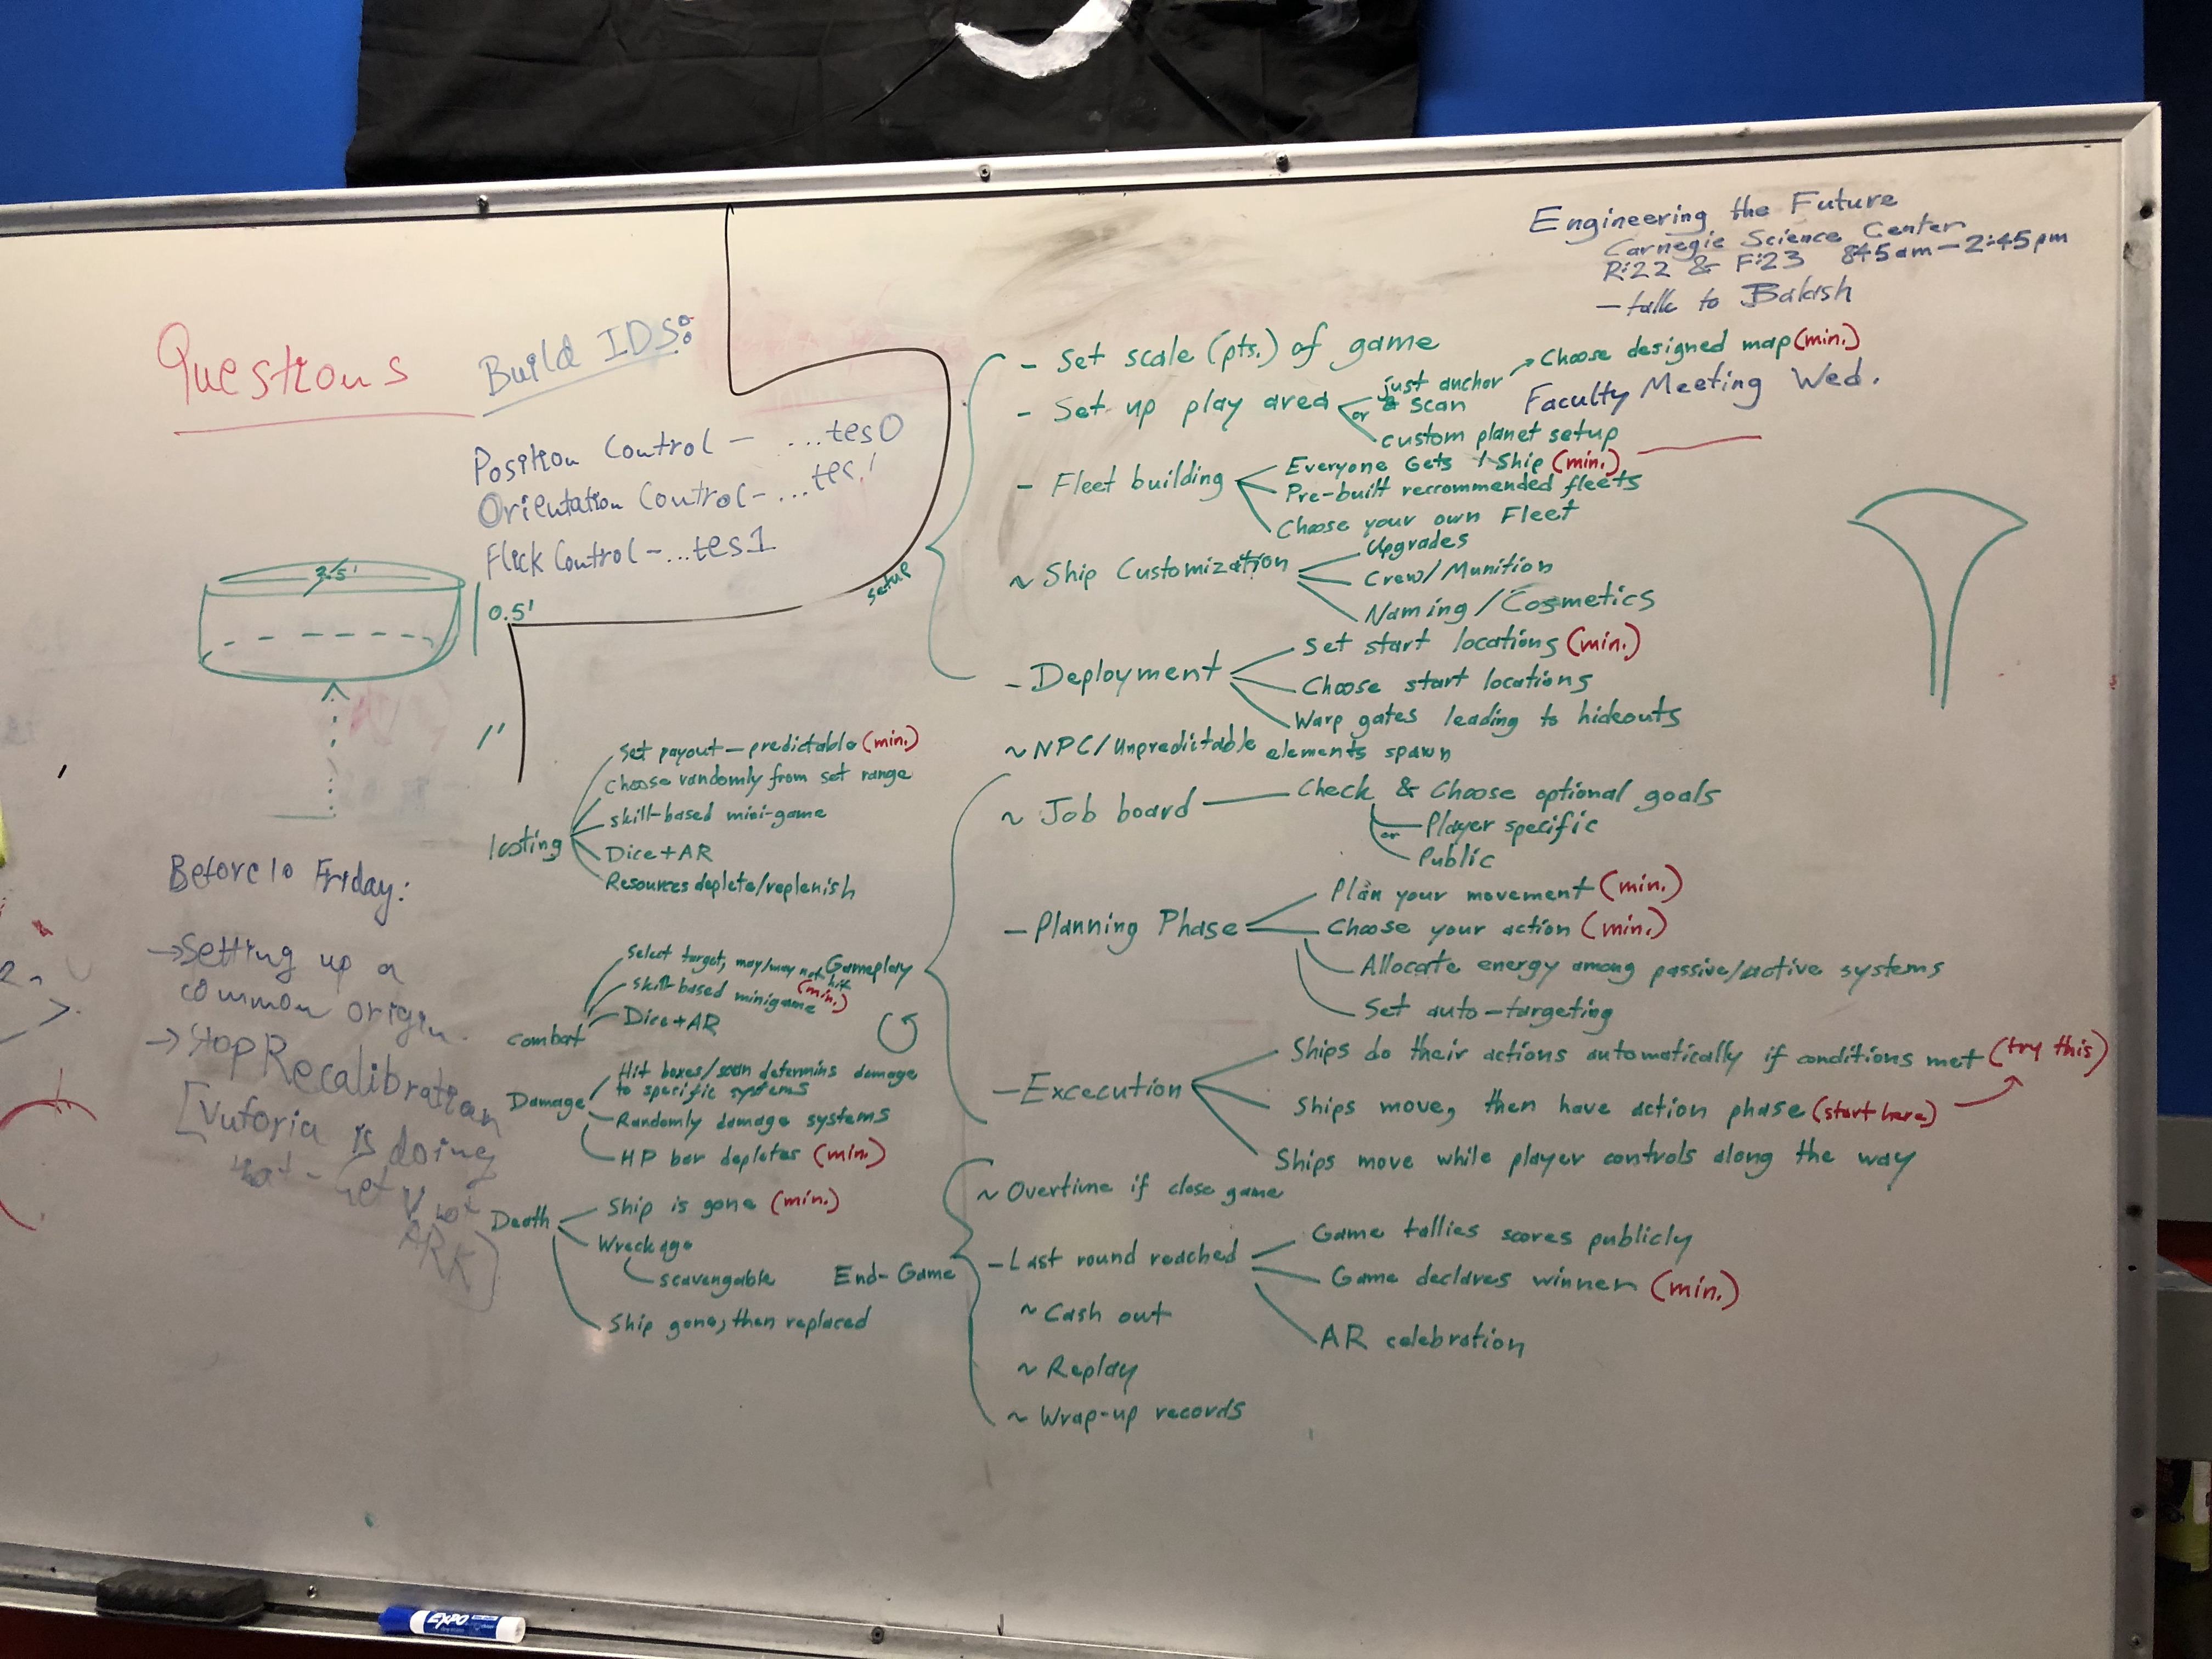 Engineering the Future
Carnegie Science Center
R:22 & F:23 845am-2:45pm
- talk to Balash
Faculty Meeting Wed.
Questions
Build IDS:
Position Control - ...tes0
Orientation Control - ...tes!
Flick Control - ...tes1
3.5'
0.5'
1'
Before 10 Friday:
→ Setting up a
common origin.
→ Stop Recalibration
[Vuforia is doing
ARK]
setup
- Set scale (pts.) of game
- Set up play area
just anchor
& scan
→ Choose designed map (min.)
or
custom planet setup
- Fleet building
Everyone Gets 1 Ship (min.)
Pre-built reccommended fleets
Choose your own Fleet
~ Ship Customization
Upgrades
Crew/Munition
Naming/Cosmetics
- Deployment
Set start locations (min.)
Choose start locations
Warp gates leading to hideouts
~ NPC/Unpredictable elements spawn
Gameplay
~ Job board
Check & Choose optional goals
or
Player specific
Public
- Planning Phase
Plan your movement (min.)
Choose your action (min.)
Allocate energy among passive/active systems
Set auto-targeting
- Excecution
Ships do their actions automatically if conditions met (try this)
Ships move, then have action phase (start here)
Ships move while player controls along the way
End-Game
~ Overtime if close game
- Last round reached
Game tallies scores publicly
Game declares winner (min.)
AR celebration
~ Cash out
~ Replay
~ Wrap-up records
looting
Set payout - predictable (min.)
Choose randomly from set range
skill-based mini-game
Dice+AR
Resources deplete/replenish
Combat
Select target, may/may not hit
(min.)
skill-based minigame
Dice+AR
Damage
Hit boxes/scan determins damage
to specific systems
Randomly damage systems
HP bar depletes (min.)
Death
Ship is gone (min.)
Wreckage
scavengable
Ship gone, then replaced
EXPO